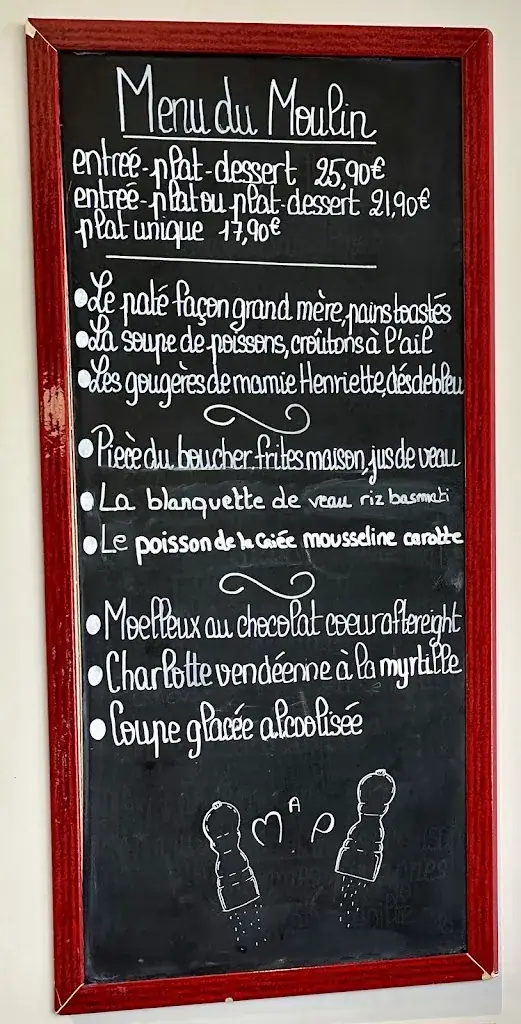 Menu du Moulin
entrée-plat-dessert 25,90€
entrée-plat ou plat-dessert 21,90€
plat unique 17,90€
•Le paté façon grand mère, pains toastés
•La soupe de poissons, croûtons à l'ail
•Les gougères de mamie Henriette, dés de bleu
•Piece du boucher, frites maison, jus de veau
•La blanquette de veau riz basmati
•Le poisson de la Criée mousseline carotte
•Moelleux au chocolat coeur aftereight
•Charlotte vendéenne à la myrtille
•Coupe glacée alcoolisée
M A P